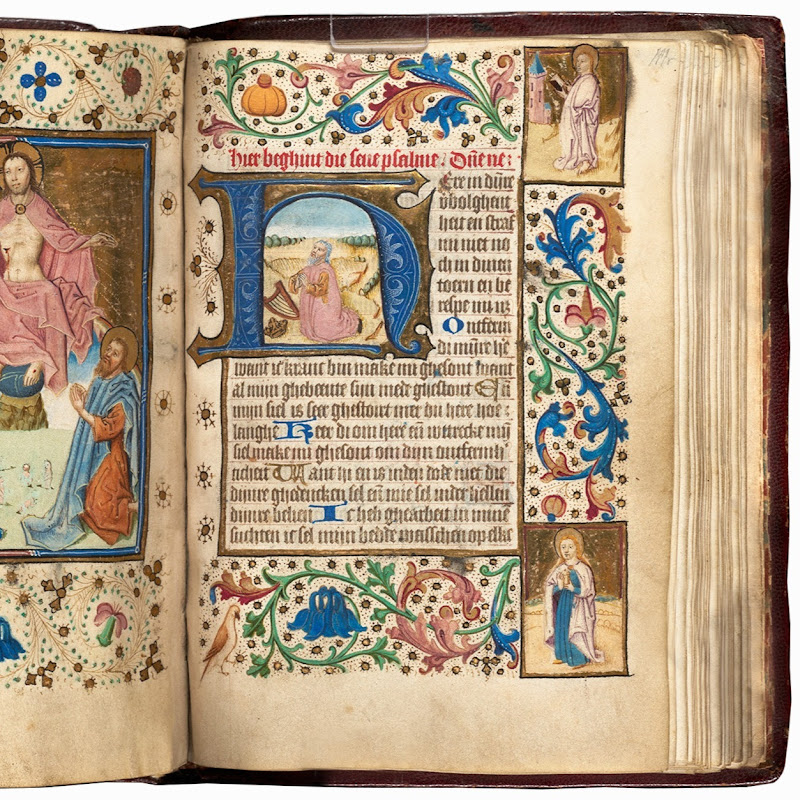 hier beghint die seue psalme. Dn̄e ne:
HEre in dijnre
v̄bolgheit
heit en straf
mi niet no
ch in dinen
toern en be
respe mi n;
Ontferm
di mijnre hē
want ic kranc bin make mi ghesont want
al mijn ghebeente sijn mede ghestoert Eñ
mijn siel is seer ghestoort mer du here hoe
langhe Keer di om here eñ verrecke mijn
siel make mi ghesont om dijn ontferm h'
ticheit Want hi en is inden dode niet die
dijnre ghedencken sel eñ wie sel inder hellen
dijnre belien Ic heb ghearbeit in mine
suchten ic sel mijn bedde wasschen op elke